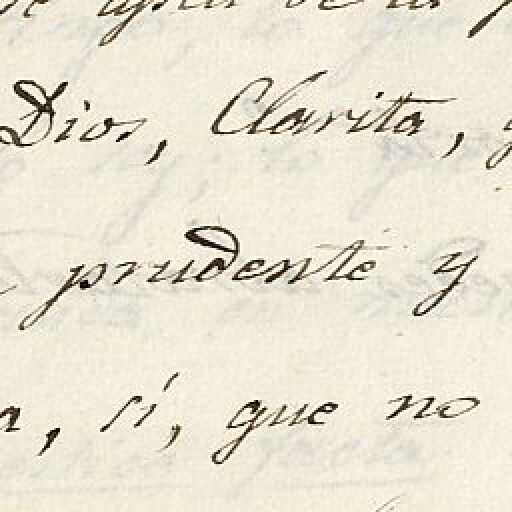 Dios, Clarita,
prudente y
a, sí, que no